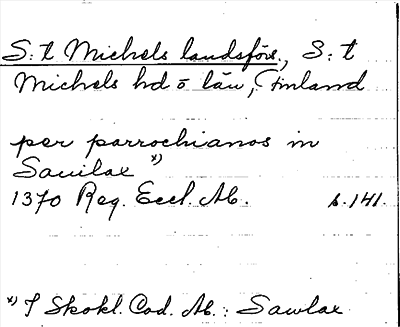 S:t Michels landsförs., S:t
Michels hd o län, Finland
per parrochianos in
Sauilax *)
1370 Reg. Eccl. Ab. s. 141.
*) I Skokl. Cod. Ab.: Sawlax